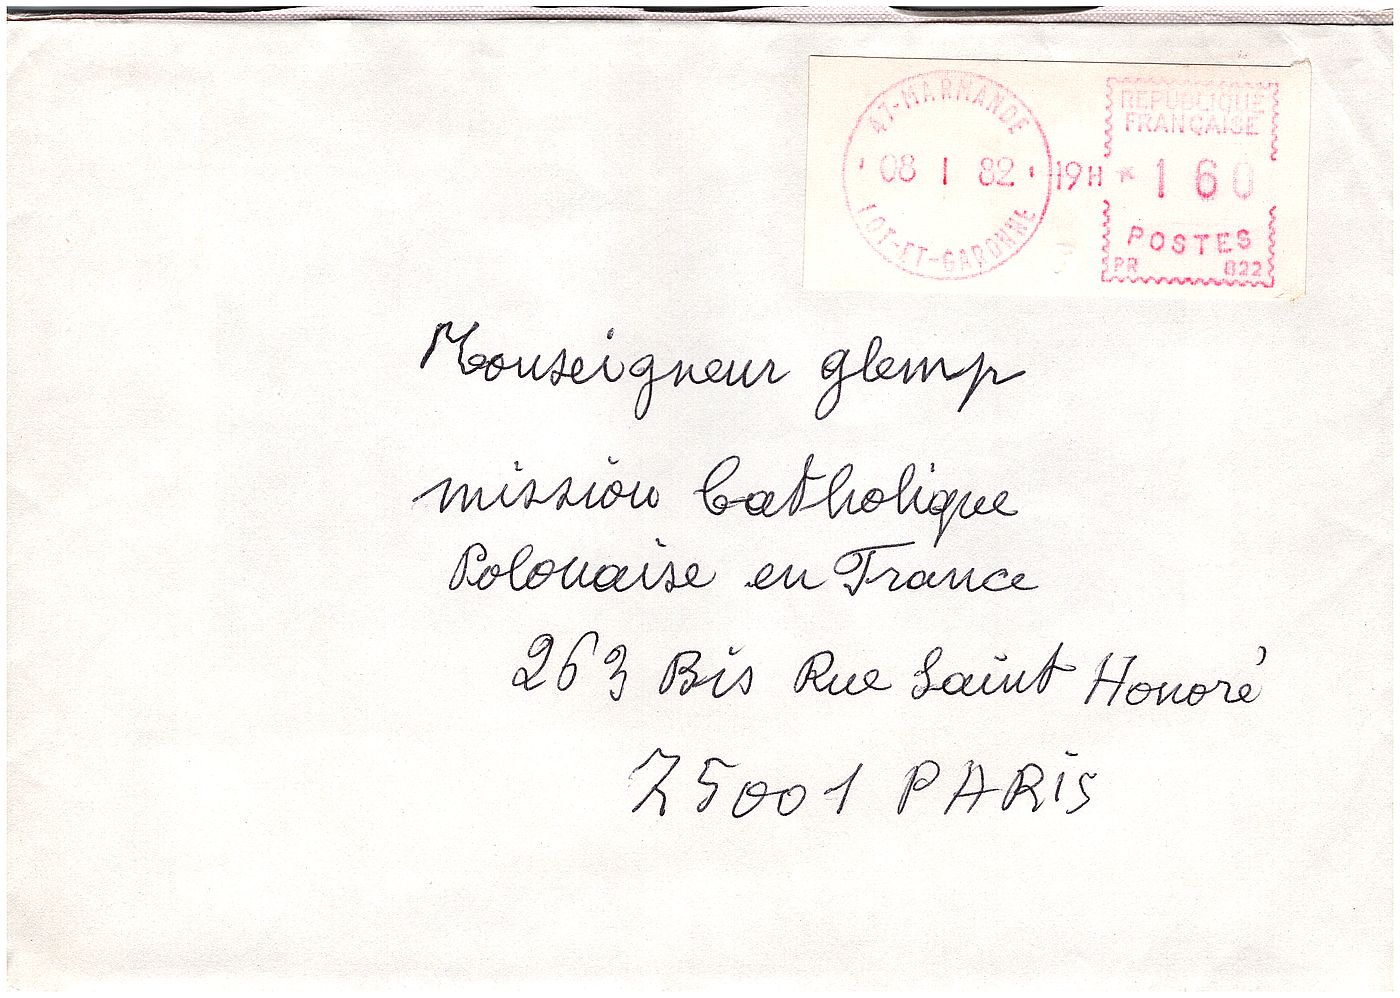 47-MARMANDE
08 1 82 19H
LOT-ET-GARONNE
REPUBLIQUE
FRANÇAISE
* 160
POSTES
PR 822
Monseigneur glemp
mission Catholique
Polonaise en France
263 Bis Rue Saint Honoré
75001 PARIS